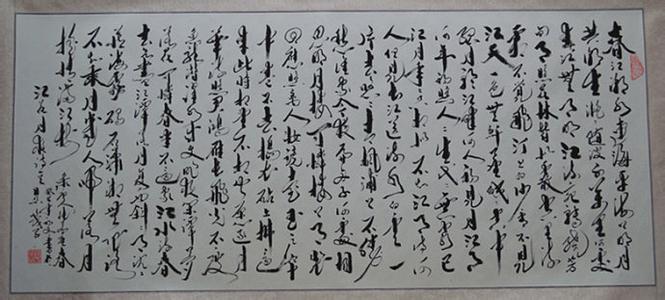 春江潮水連海平海上明月
共潮生灩灩隨波千萬里何處
春江無月明江流宛轉繞芳
甸月照花林皆似霰空里流
霜不覺飛汀上白沙看不見
江天一色無纖塵皎皎空中
孤月輪江畔何人初見月江月
何年初照人人生代代無窮已
江月年年只相似不知江月待何
人但見長江送流水白雲一
片去悠悠青楓浦上不勝
愁誰家今夜扁舟子何處相
思明月樓可憐樓上月裴
回應照離人妝鏡台玉戶簾
中卷不去搗衣砧上拂還
來此時相望不相聞願逐月
華流照君鴻雁長飛光不度
魚龍潛躍水成文昨夜閒潭夢
落花可憐春半不還家江水流春
去欲盡江潭落月復西斜斜月沉沉
藏海霧碣石瀟湘無限路
不知乘月幾人歸落月
搖情滿江樹